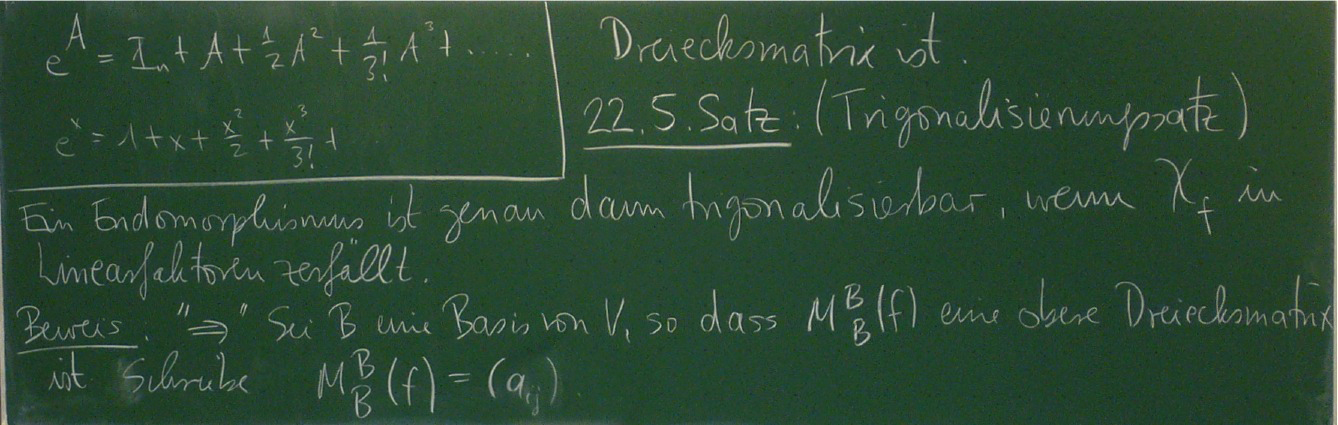 e^A = I_n + A + 1/2 A² + 1/3! A³ + ......
e^x = 1 + x + x²/2 + x³/3! +
Dreiecksmatrix ist.
22.5. Satz: (Trigonalisierungssatz)
Ein Endomorphismus ist genau dann trigonalisierbar, wenn χ_f in
Linearfaktoren zerfällt.
Beweis: "⇒" Sei B eine Basis von V, so dass M_B^B(f) eine obere Dreiecksmatrix
ist Schreibe M_B^B(f) = (a_ij)